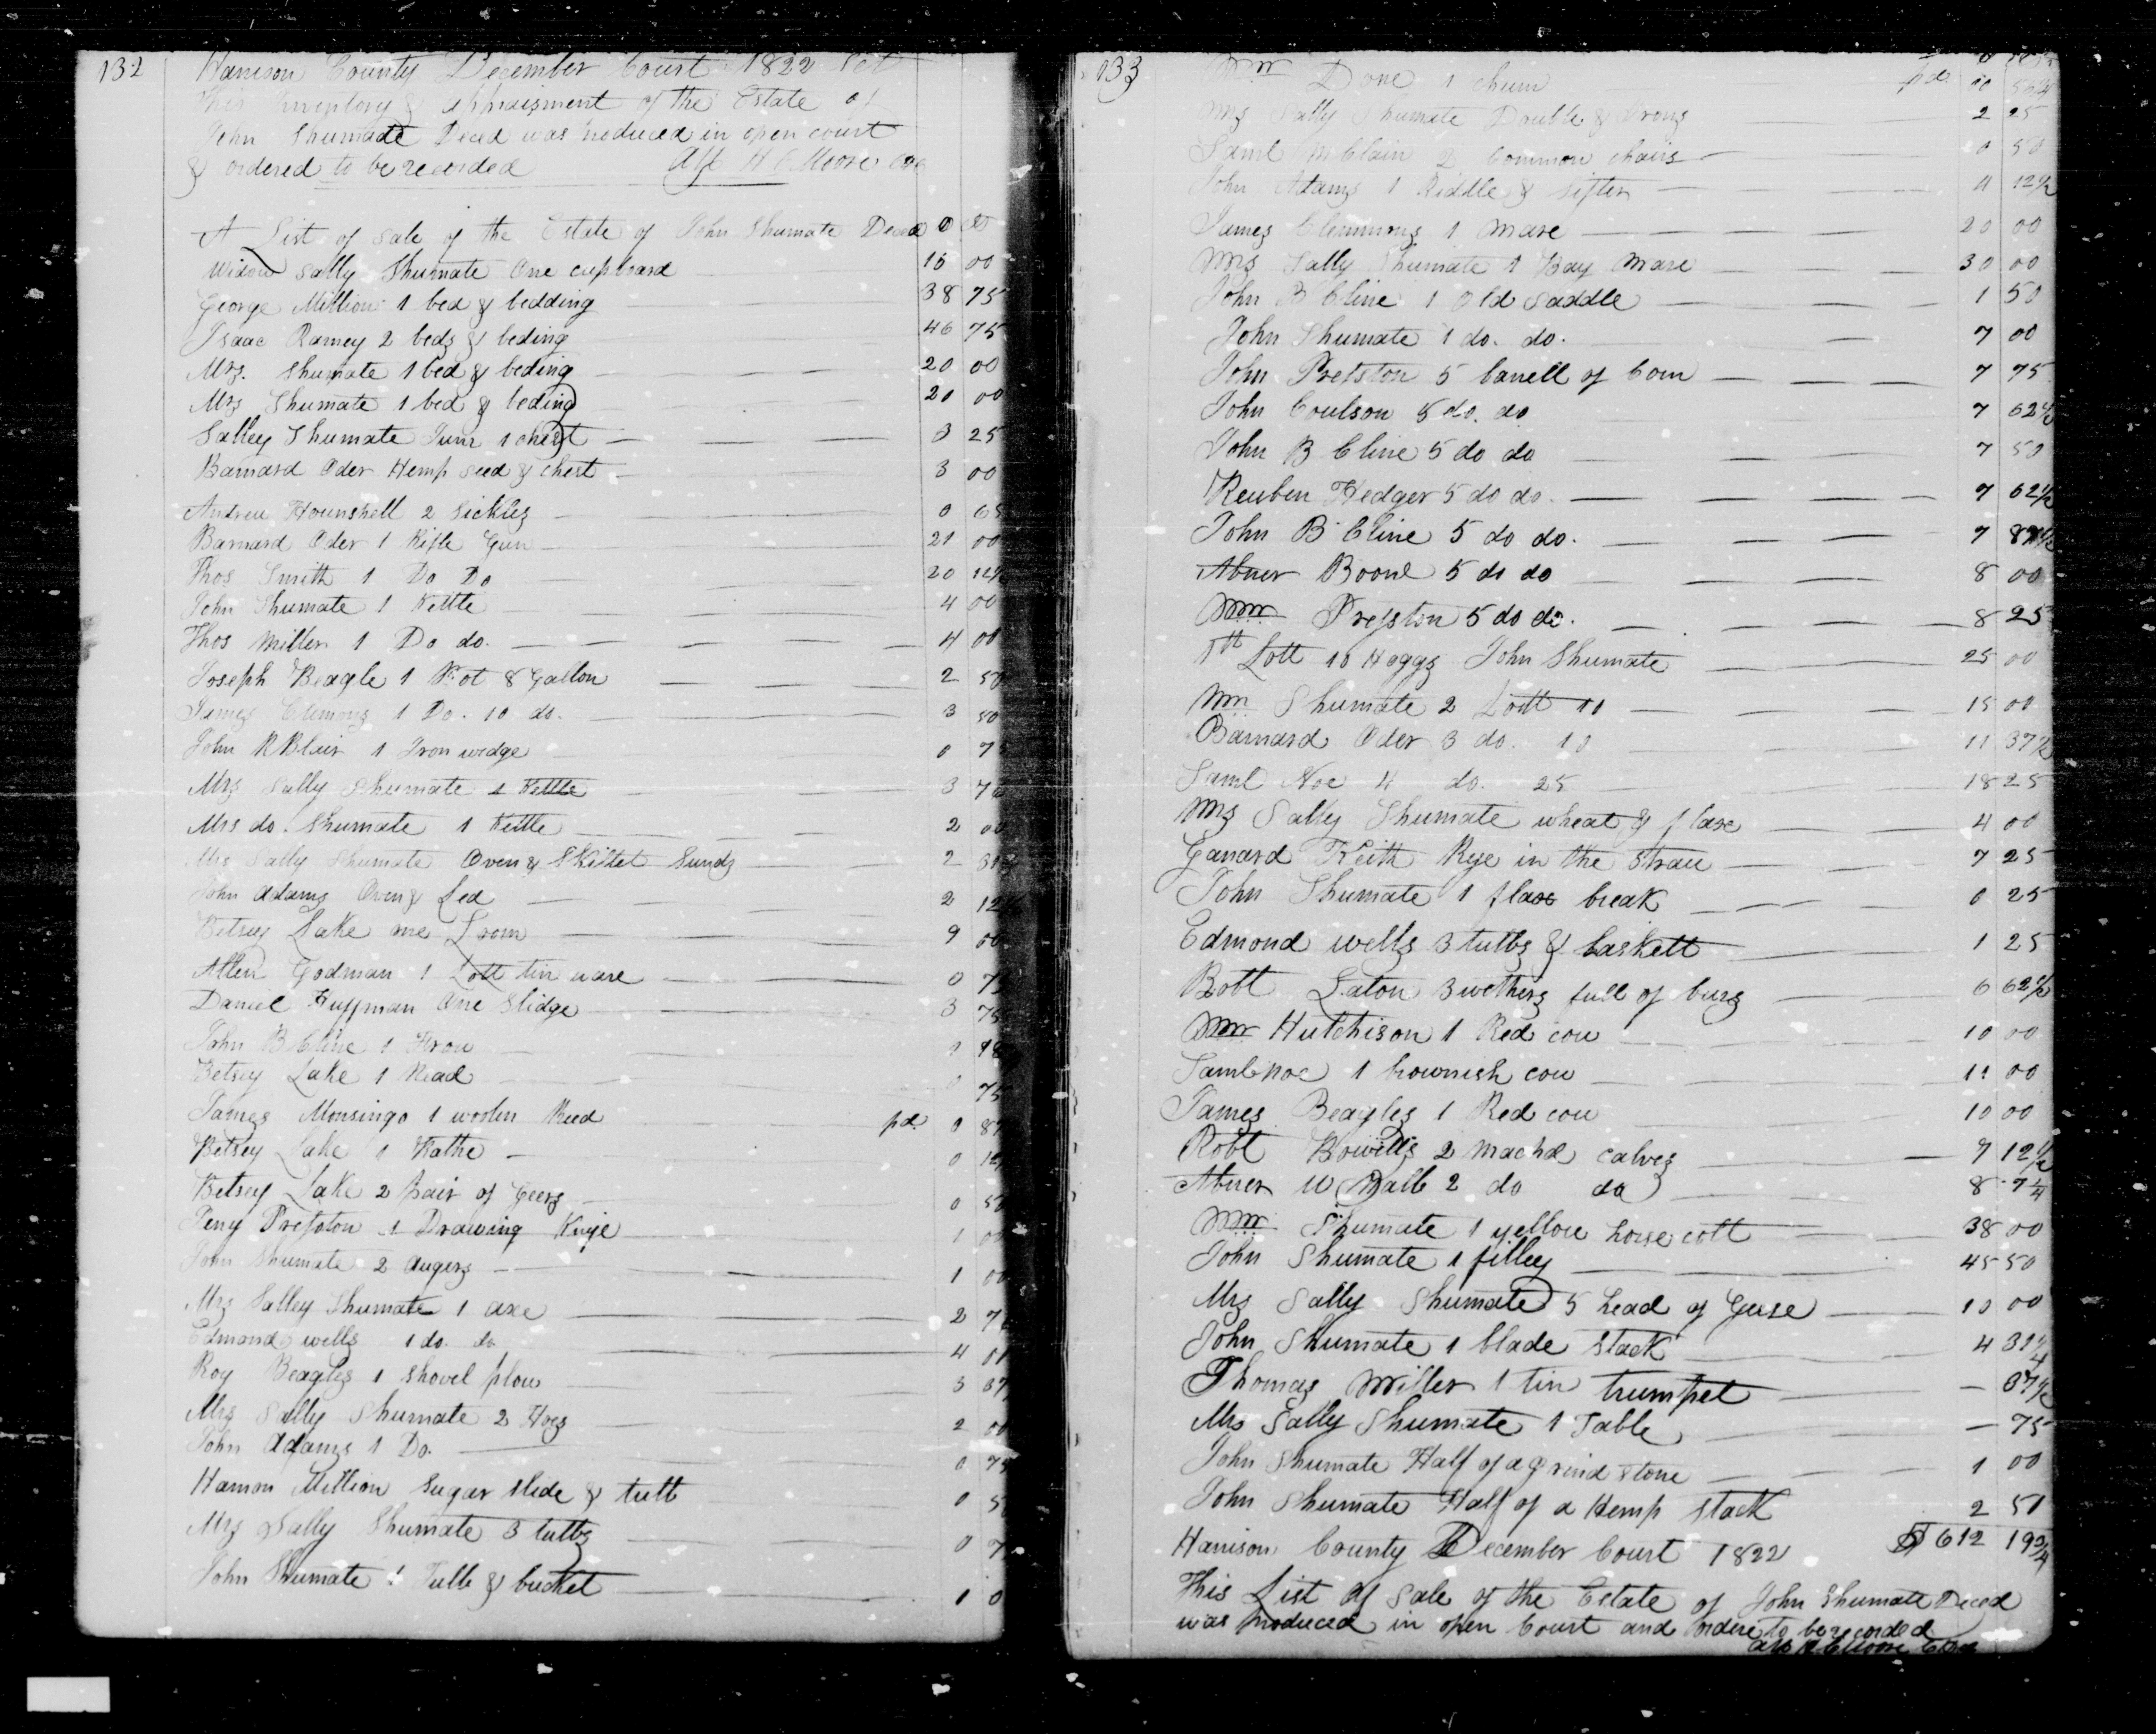 132
Harrison County December Court 1822 Sct
This Inventory & appraisment of the Estate of
John Shumate Decd was produced in open court
& ordered to be recorded Att H C Moore
A List of sale of the Estate of John Shumate Decd
Widow Sally Shumate One cupboard 16 00
George Million 1 bed & bedding 38 75
Isaac Ramey 2 beds & beding 46 75
Mrs. Shumate 1 bed & beding 20 00
Mrs Shumate 1 bed & beding 20 00
Salley Shumate Junr 1 chest 3 25
Barnard Oder Hemp seed & chest 3 00
Andrew Hounshell 2 Sickles 0
Barnard Oder 1 Rifle Gun 21 00
Thos Smith 1 Do Do 20 12½
John Shumate 1 Kettle 4 00
Thos Miller 1 Do do. 4 00
Joseph Beagle 1 Pot 8 Gallon 2 50
James Clemons 1 Do. 10 do. 3 50
John R Blair 1 Iron wedge 0 7
Mrs Sally Shumate 1 Kettle 3 7
Mrs do. Shumate 1 Kettle 2 00
Mrs Sally Shumate Oven & Skillet Sunds 2
John Adams Oven & Led 2 12
Betsey Lake one Loom 9 00
Allen Godman 1 Lott tin ware 0 7
Daniel Huffman One Slidge 3 75
John B Cline 1
Betsey Lake 1 Read 75
James Monsingo 1 woolen Reed pd. 0 87
Betsey Lake 1 0
Betsey Lake 2 pair of Geers 0 50
Peny Presston 1 Drawing Knife 1 00
John Shumate 2 Augers 1 00
Mrs Salley Shumate 1 axe 2 7
Edmond wells 1 do. do 4
Roy Beagles 1 Shovel plow 3 37
Mrs Sally Shumate 2 Hoes 2 00
John Adams 1 Do. 0 75
Harmon Million Sugar slide & tubb 0 5
Mrs Sally Shumate 3 tubbs 0 7
John Shumate 1 Tubb & bucket 1 0
133
Wm Done 1 churn pd. 00 56¼
Mrs Sally Shumate Double & 2 25
Saml McClain 2 Common chairs 0 50
John Adams 1 Riddle & sifter 0 12½
James Clemmons 1 Mare 20 00
Mrs Sally Shumate 1 Bay Mare 30 00
John B Cline 1 Old Saddle 1 50
John Shumate 1 do. do. 7 00
John Presston 5 barrell of Corn 7 75
John Coulson 5 do. do 7 62½
John B Cline 5 do do 7 50
Reuben Hedger 5 do do. 7 62½
John B Cline 5 do do. 7 87½
Abner Boone 5 do do 8 00
Wm Presston 5 do do. 8 25
1st Lott 10 Hoggs John Shumate 25 00
Wm Shumate 2 Lott 10 15 00
Barnard Oder 3 do. 10 11 37½
Saml Noe 4 do. 25 18 25
Mrs Sally Shumate wheat & flax 4 00
Garrard Keith Rye in the Straw 7 25
John Shumate 1 flax break 0 25
Edmond wells 3 tubbs & baskett 1 25
Robt Eaton 3 wethers full of burs 6 62½
Wm Hutchison 1 Red cow 10 00
Saml Noe 1 brownish cow 11 00
James Beagles 1 Red cow 10 00
Robt Bowills 2 machd calves 7 12½
Abner W Ball 2 do do 8
Wm Shumate 1 yellow horse colt 38 00
John Shumate 1 filley 45 50
Mrs Sally Shumate 5 head of Geese 10 00
John Shumate 1 blade stack 4 31¼
Thomas Miller 1 tin trumpet — 37½
Mrs Sally Shumate 1 Table — 75
John Shumate Half of a grind stone 1 00
John Shumate Half of a Hemp stack 2 50
$ 612 19¾
Harrison County December Court 1822
This List of Sale of the Estate of John Shumate Decd
was produced in open Court and orderd to be recorded
Att H C Moore